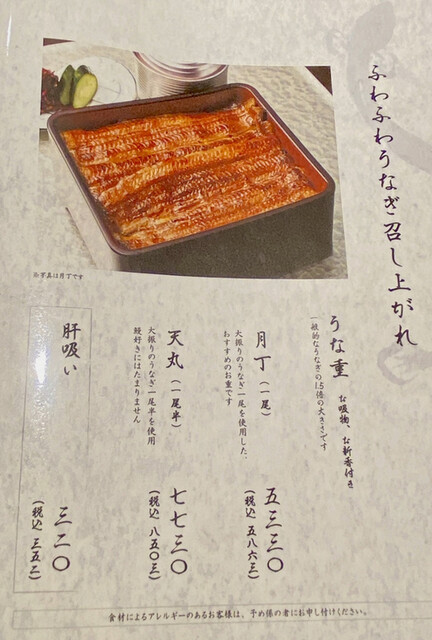 ふわふわうなぎ召し上がれ
※写真は月丁です
うな重 お吸物、お新香付き
一般的なうなぎの1.5倍の大きさです
月丁(一尾)
大振りのうなぎ一尾を使用した、
おすすめのお重です
五三三〇
(税込 五八六三)
天丸(一尾半)
大振りのうなぎ一尾半を使用
鰻好きにはたまりません
七七三〇
(税込 八五〇三)
肝吸い
三二〇
(税込 三五二)
食材によるアレルギーのあるお客様は、予め係の者にお申し付けください。